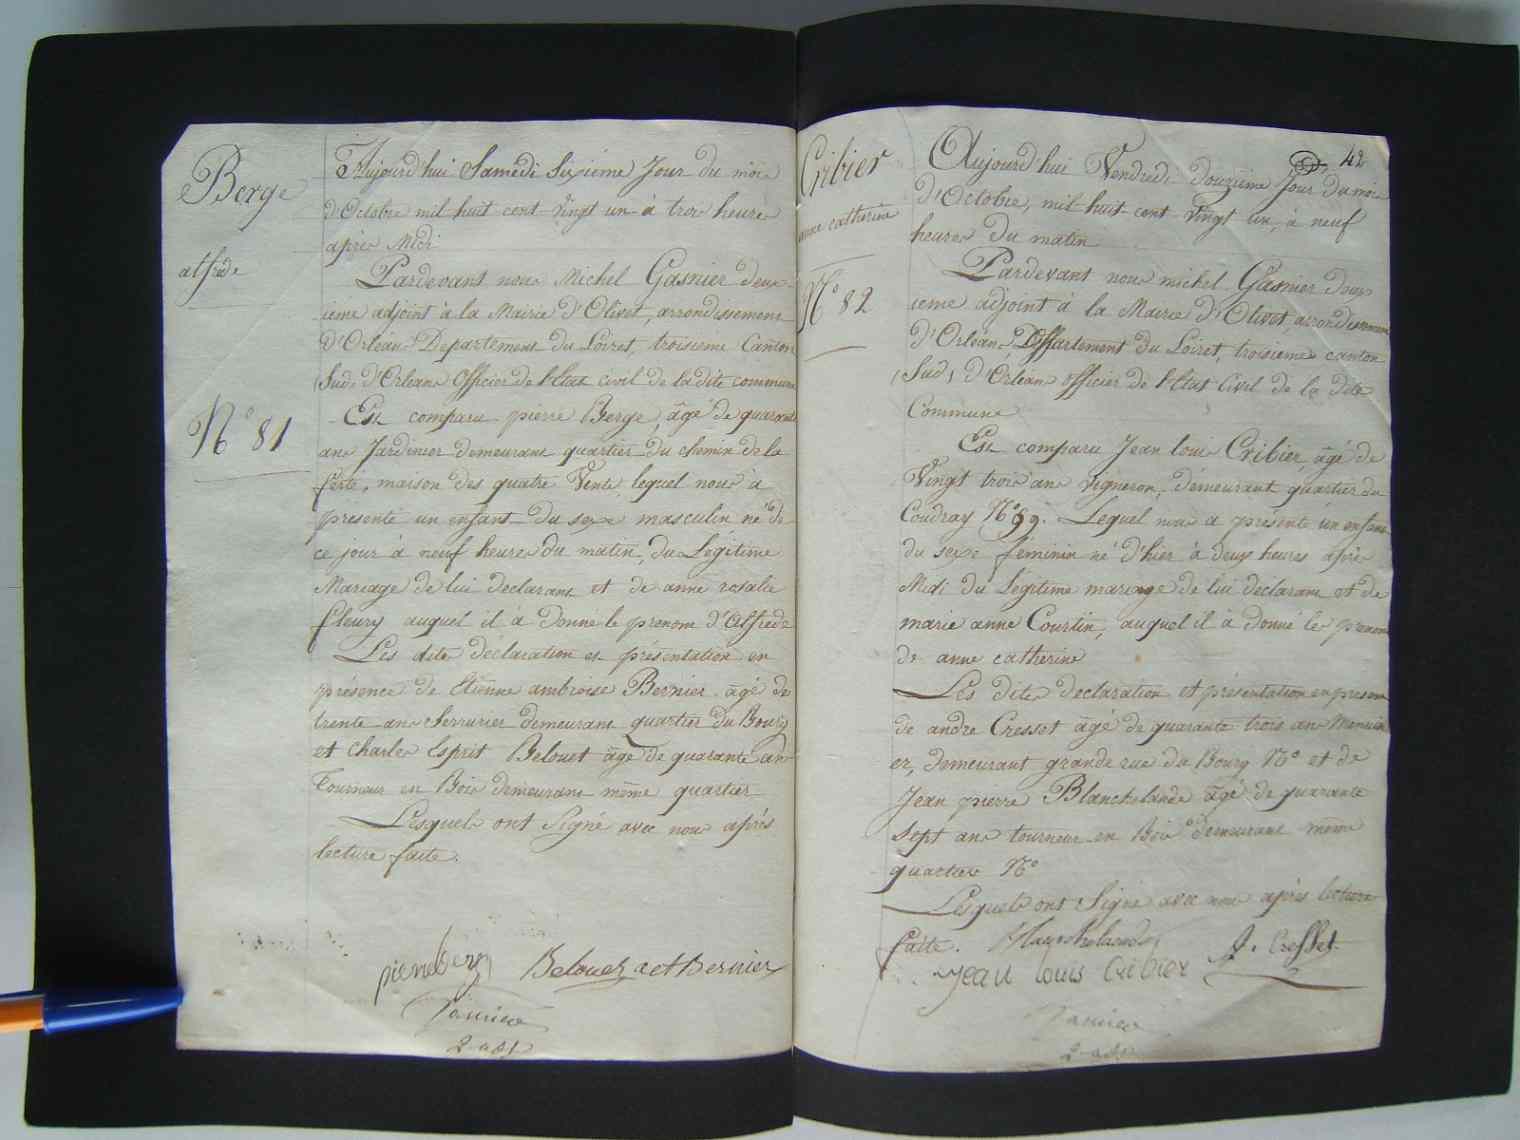 Berge
alfrede
N° 81
Aujourd'hui Samedi Sixieme Jour du mois
d'Octobre mil huit cent vingt un à trois heures
après Midi
Pardevant nous Michel Gasnier deux-
ieme adjoint à la Mairie d'Olivet, arrondissement
d'Orléans Departement du Loiret, troisieme Canton
Sud d'Orleans Officier de l'Etat civil de la dite commune
Est comparu pierre Berge, âgé de quarante
ans Jardinier demeurant quartier du chemin de la
ferté, maison des quatre Vents, lequel nous à
présenté un enfant du sexe masculin né de
ce jour à neuf heures du matin, du Légitime
Mariage de lui declarant et de anne rosalie
fleury auquel il à donné le prenom d'Alfrede
Les dites déclaration et présentation en
présence de Etienne ambroise Bernier âgé de
trente ans Serrurier demeurant quartier du Bourg
et Charles Esprit Belouet âgé de quarante ans
Tourneur en Bois demeurant même quartier
Lesquels ont Signé avec nous après
lecture faite.
pierre berge Belouet aet Bernier
2 adj
Cribier
anne catherine
N° 82
42
Aujourd'hui Vendredi douzieme Jour du mois
d'Octobre, mil huit cent vingt un, à neuf
heures du matin
Pardevant nous michel Gasnier deux
ieme adjoint à la Mairie d'Olivet arrondissement
d'Orleans, Departement du Loiret, troisieme canton
Sud, d'Orleans officier de l'Etat Civil de la dite
Commune
Est comparu Jean louis Cribier âgé de
Vingt trois ans Vigneron, demeurant quartier du
Coudray N° 99. Lequel nous a présenté un enfant
du sexe féminin né d'hier à deux heures après
Midi du Légitime mariage de lui declarant et de
marie anne Courtin, auquel il à donné les prenoms
de anne catherine
Les dites declaration et présentation en presence
de andre Cresset âgé de quarante trois ans Menuisi
er, demeurant grande rue du Bourg N° et de
Jean pierre Blanchelande âgé de quarante
sept ans tourneur en Bois demeurant même
quartier N°
Lesquels ont Signé avec nous après lecture
faite. Blanchelande A. Cresset
Jean louis Cribier
2 adj